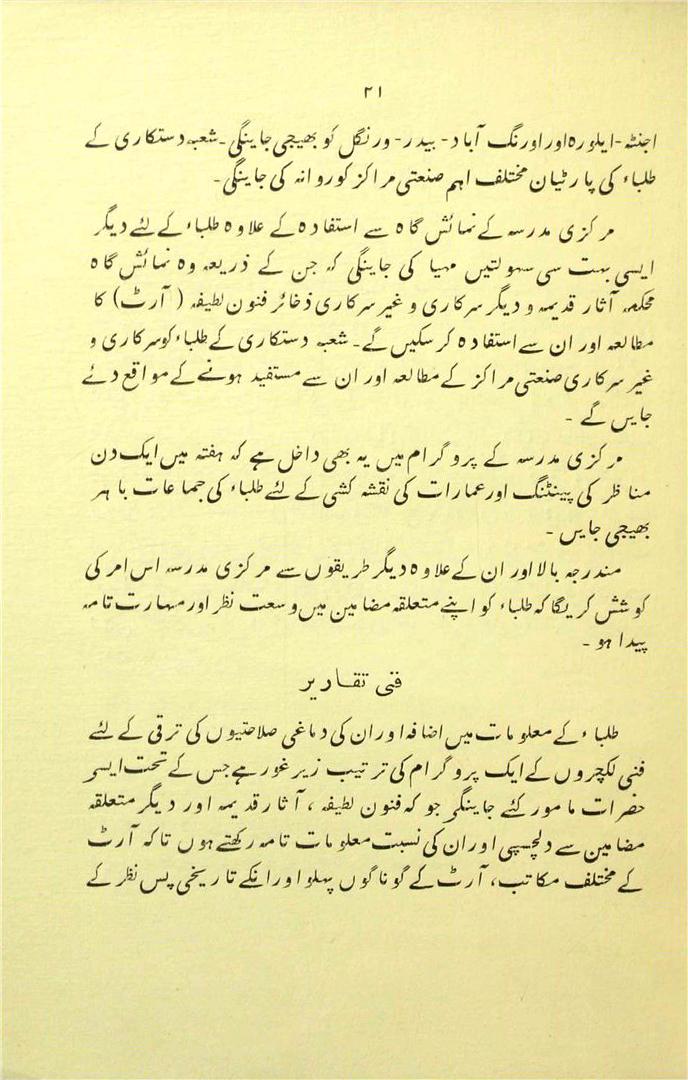 ۲۱
اجنٹہ-ایلورہ اور اورنگ آباد- بیدر- ورنگل کو بھیجی جاینگی۔شعبہ دستکاری کے
طلباء کی پارٹیان مختلف اہم صنعتی مراکز کو روانہ کی جاینگی۔
مرکزی مدرسہ کے نمائش گاہ سے استفادہ کے علاوہ طلباء کے لئے دیگر
ایسی بہت سی سہولتیں مہیا کی جاینگی کہ جن کے ذریعہ وہ نمائش گاہ
محکمہ آثار قدیمہ و دیگر سرکاری و غیر سرکاری ذخائر فنون لطیفہ (آرٹ) کا
مطالعہ اور ان سے استفادہ کر سکیں گے۔ شعبہ دستکاری کے طلباء کو سرکاری و
غیر سرکاری صنعتی مراکز کے مطالعہ اور ان سے مستفید ہونے کے مواقع دئے
جایں گے ۔
مرکزی مدرسہ کے پروگرام میں یہ بھی داخل ہے کہ ہفتہ میں ایک دن
مناظر کی پینٹنگ اور عمارات کی نقشہ کشی کے لئے طلباء کی جماعات باہر
بھیجی جایں ۔
مندرجہ بالا اور ان کے علاوہ دیگر طریقوں سے مرکزی مدرسہ اس امر کی
کوشش کریگا کہ طلباء کو اپنے متعلقہ مضامین میں وسعت نظر اور مہارت تامہ
پیدا ہو ۔
فنی تقادیر
طلباء کے معلومات میں اضافہ اور ان کی دماغی صلاحتیوں کی ترقی کے لئے
فنی لکچروں کے ایک پروگرام کی ترتیب زیر غور ہے جس کے تحت ایسے
حضرات مامور کئے جاینگے جو کہ فنون لطیفہ ، آثار قدیمہ اور دیگر متعلقہ
مضامین سے دلچسپی اور ان کی نسبت معلومات تامہ رکھتے ہوں تاکہ آرٹ
کے مختلف مکاتب، آرٹ کے گوناگوں پہلو اور انکے تاریخی پس نظر کے